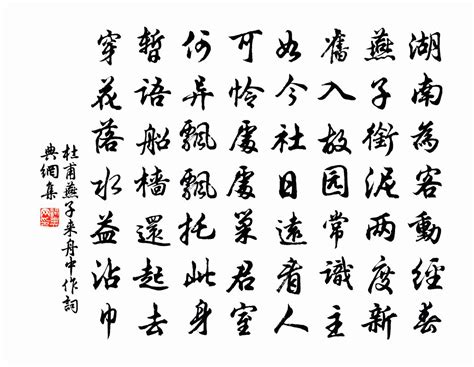 湖南為客動經春
燕子銜泥兩度新
舊入故园常識主
如今社日遠看人
可怜處處巢君室
何异飄飄托此身
暫語船檣還起去
穿花落水益沾巾
杜甫燕子来舟中作詞
典網集